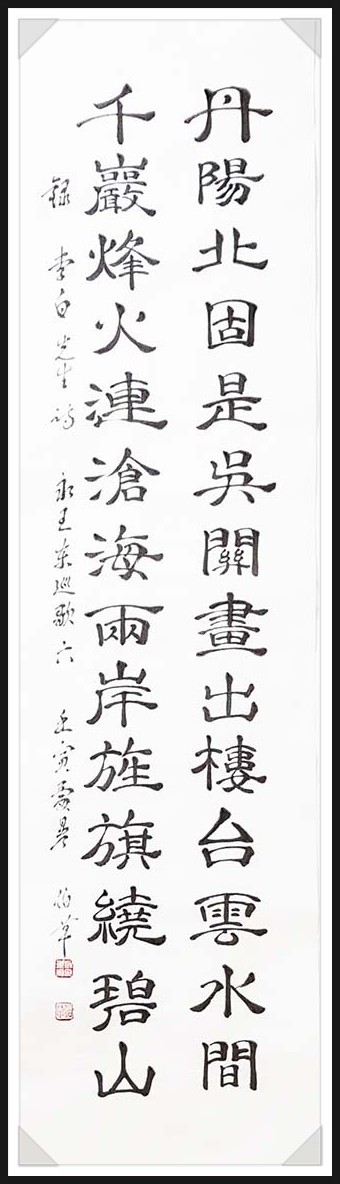 丹陽北固是吳關畫出樓台雲水間
千巖烽火連滄海兩岸旌旗繞碧山
録 李白先生詩 永王东巡歌 六 壬寅